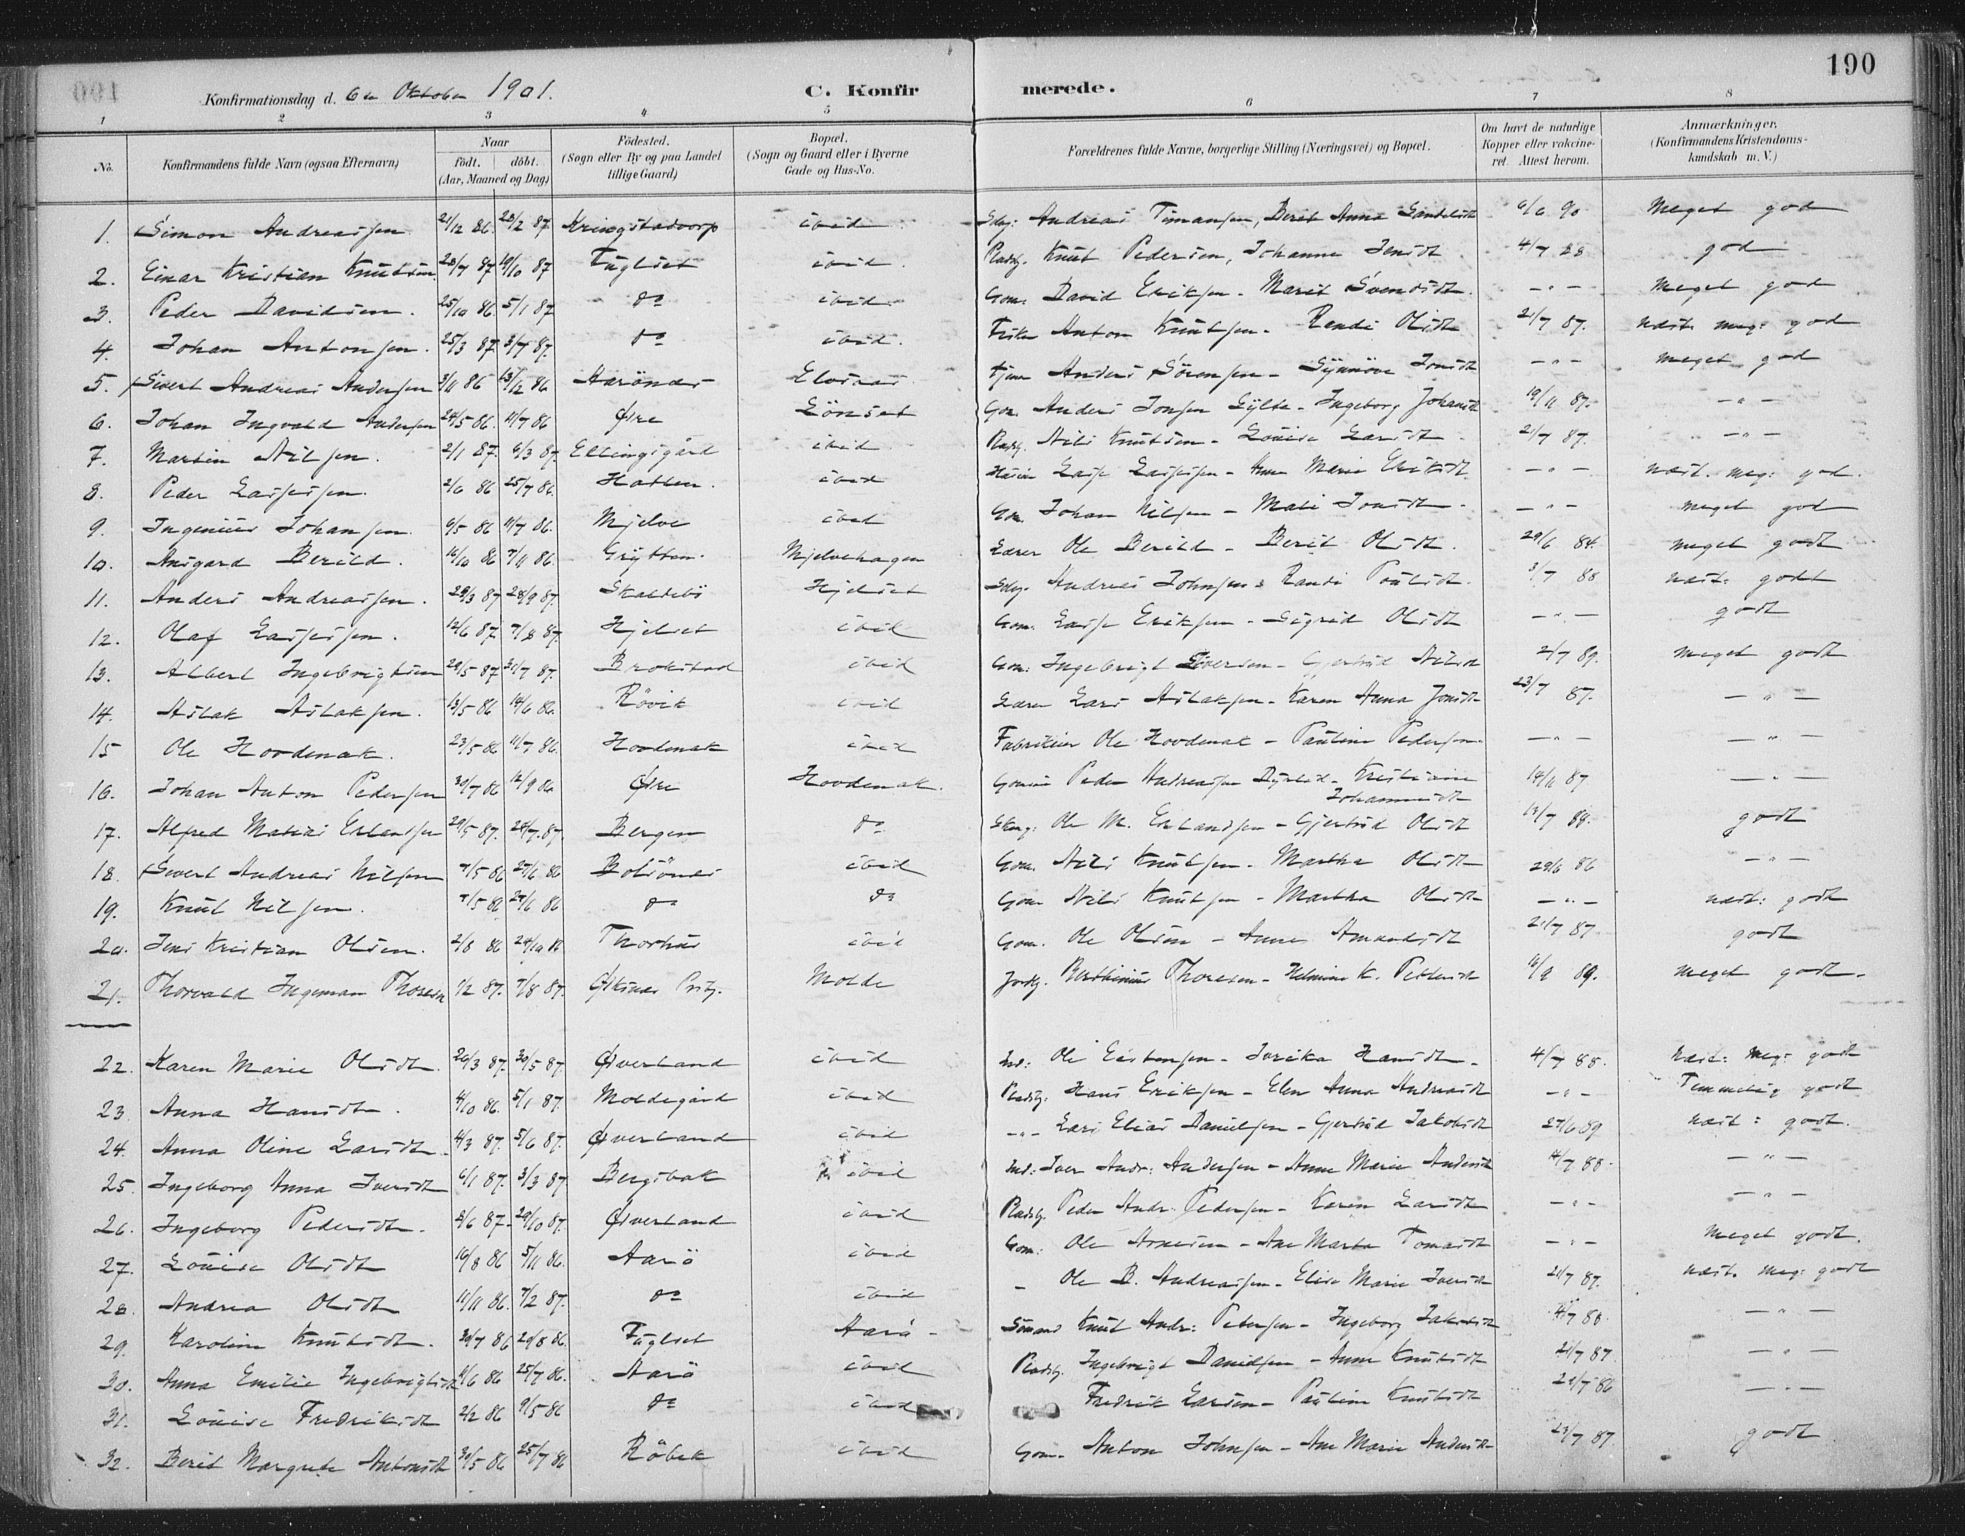 190
Konfirmationsdag d. 6te Oktober 1901. C. Konfirmerede.
1 2 3 4 5 6 7 8
No. Konfirmandens fulde Navn (ogsaa Efternavn) Naar födt. döbt. (Aar, Maaned og Dag) Födested. (Sogn eller By og paa Landet tillige Gaard) Bopæl. (Sogn og Gaard eller i Byerne Gade og Hus-No. Forældrenes fulde Navne, borgerlige Stilling (Næringsvei) og Bopæl. Om havt de naturlige Kopper eller vakcineret. Attest herom. Anmærkninger. (Konfirmandens Kristendomskundskab m. V.)
1. Simon Andreassen 21/12 86. 23/2 87 Kringstadvorp ibid Andreas Timansen, Berit Anna 6/6 90 Meget god
2. Einar Kristian Knutsen 28/7 87 19/10 87 Fuglset ibid. Pladsg. Knut Pedersen, Johanne Jensdt 4/7 88 god
3. Peder Davidsen. 25/10 86. 5/1 87 do ibid Gom. David Eriksen - Marit Svendsdt. — " — Meget god
4. Johan Antonsen. 25/3 87 3/7 87. do ibid. Fisker Anton Knutsen - Randi Olsdt 21/7 87. næst. meg: god
5. Sivert Andreas Andersen 3/11 86 13/12 86 Aarönes Elvsaas tjener Anders Sörensen - Synnöve Jonsdt — " — meget god
6. Johan Ingvald Andersen 24/5 86. 11/7 86 Øre Lönset Gom. Anders Jonsen Gylte - Ingeborg Johansdt 19/11 87. — " —
7. Martin Nilsen. 2/1 87. 6/3 87. Ellingsgård ibid Pladsg. Nils Knutsen - Louise Larsdt 21/7 87. — " —
8. Peder Lassesen. 2/6 86 25/7 86. Hatlen. ibid Lasse Lassesen - Ane Marie Eriksdt — " — næst. meg: god.
9. Ingenius Johansen. 6/5 86 11/7 86. Mjelve ibid Gom. Johan Nilsen - Mali Jonsdt. — " — meget god
10. Ansgard Berild. 16/10 86 7/11 86. Grytten. Mjelvehagen Lærer Ole Berild - Berit Olsdt. 29/6 84. meget godt
11. Anders Andreassen. 29/3 87 28/9 87. Skaldebö Hjelset Andreas Johnsen & Randi Poulsdt. 3/7 88 næst: godt
12. Olaf Lassesen. 12/6 87. 7/8 87. Hjelset ibid Gom. Lasse Eriksen - Sigrid Olsdt — " — godt
13. Albert Ingebrigtsen 28/5 87 31/7 87. Brokstad ibid Gom: Ingebrigt Iversen - Gjertrud Nilsdt 2/7 89. meget godt
14. Aslak Aslaksen. 13/5 86 14/6 86. Rövik ibid Lærer Lars Aslaksen - Karen Anna Jonsdt 23/7 87. — " —
15 Ole Hovdenak. 23/5 86 11/7 86. Hovdenak ibid Fabrikeier Ole Hovdenak - Pauline Pedersen — " — — " —
16. Johan Anton Pedersen 30/7 86 12/9 86 Øre Hovdenak. Peder Andreassen - Kristiane Johannesdt 14/11 87 — " —
17. Alfred Matias Erlandsen 29/5 87. 24/7 87. Bergen do Ole M. Erlandsen - Gjertrud Olsdt 13/7 88. godt
18. Sivert Andreas Nilsen 7/5 86 27/6 86 Bolsönes ibid Gom. Nils Knutsen - Martha Olsdt 29/6 86 — " —
19. Knut Nilsen. 7/5 86 27/6 86 do do Gom Nils Knutsen - Martha Olsdt — " — næst: godt
20. Jens Kristian Olsen. 2/8 86 24/10 86 Thorhus ibid Gom. Ole Olsen - Anne Amundsdt 21/7 87. godt
21. Thorvald Ingeman Thoresen 1/2 87. 7/8 87. Øksnes Molde Berthinius Thoresen - Helmine K. Petersdt 16/9 89. meget godt.
22. Karen Marie Olsdt. 20/3 87. 30/5 87. Øverland ibid Ind: Ole Eistensen - Sverika Hansdt - 4/7 88. næst: meg: godt
23. Anna Hansdt. 4/10 86. 5/1 87. Moldegård ibid Pladsg. Hans Eriksen - Elen Anna Andreasdt — " — Temmelig godt
24. Anna Oline Larsdt. 4/3 87. 5/6 87. Øverland ibid - " - Lars Elias Danielsen - Gjertrud Jakobsdt 27/6 89 næst: godt.
25. Ingeborg Anna Iversdt 6/1 87. 3/3 87 Bergsbak ibid Ind: Iver Andr: Andersen - Anne Marie Andersdt 4/7 88. — " —
26. Ingeborg Pedersdt. 3/6 87. 29/10 87. Øverland ibid Pladsg. Peder Andr. Pedersen - Karen Larsdt — " — — " —
27. Louise Olsdt 16/8 86 5/11 86. Aarö ibid Gom: Ole Arnesen - Ane Marta Tomasdt — " — Meget godt.
28. Andrea Olsdt 11/11 86. 7/2 87. do ibid - Ole B. Andreassen - Elise Marie Iversdt 21/7 87. næst. meg: godt
29. Karoline Knutsdt. 30/7 86 29/8 86. Fuglset Aarö - Sömand Knut Andr: Petersen - Ingeborg Jakobsdt 4/7 88. — " —
30. Anna Emilie Ingebrigtsdt 1/6 86 25/7 86. Aarö ibid Pladsg. Ingebrigt Danielsen - Anne Knutsdt 21/7 87. — " —
31. Louise Fredriksdt 2/2 86 9/5 86 do ibid Fredrik Larsen - Pauline Knutsdt 21/7 86 — " —
32. Berit Margrete Antonsdt 30/5 86 25/7 86 Röbek ibid Gom. Anton Johnsen - Ane Marie Andersdt 23/7 87. godt